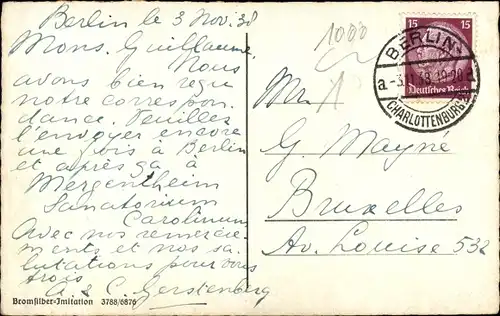 Berlin le 3 Nov. 38
Mons. Guillaume.
Nous
avons bien reçu
notre correspon-
dance. Veuillez
l'envoyer encore
une fois à Berlin
et après ça à
Mergentheim
Sanatorium
Carolinum
Avec nos remercie-
ments et nos sa-
lutations pour vous
trois
A. & C. Gerstenberg
Bromsilber-Imitation 3788/6876
1000
15 15
Deutsches Reich
BERLIN-
a -3.11.38.19-20 a
CHARLOTTENBURG
Mr
G. Mayne
Bruxelles
Av. Louise 532